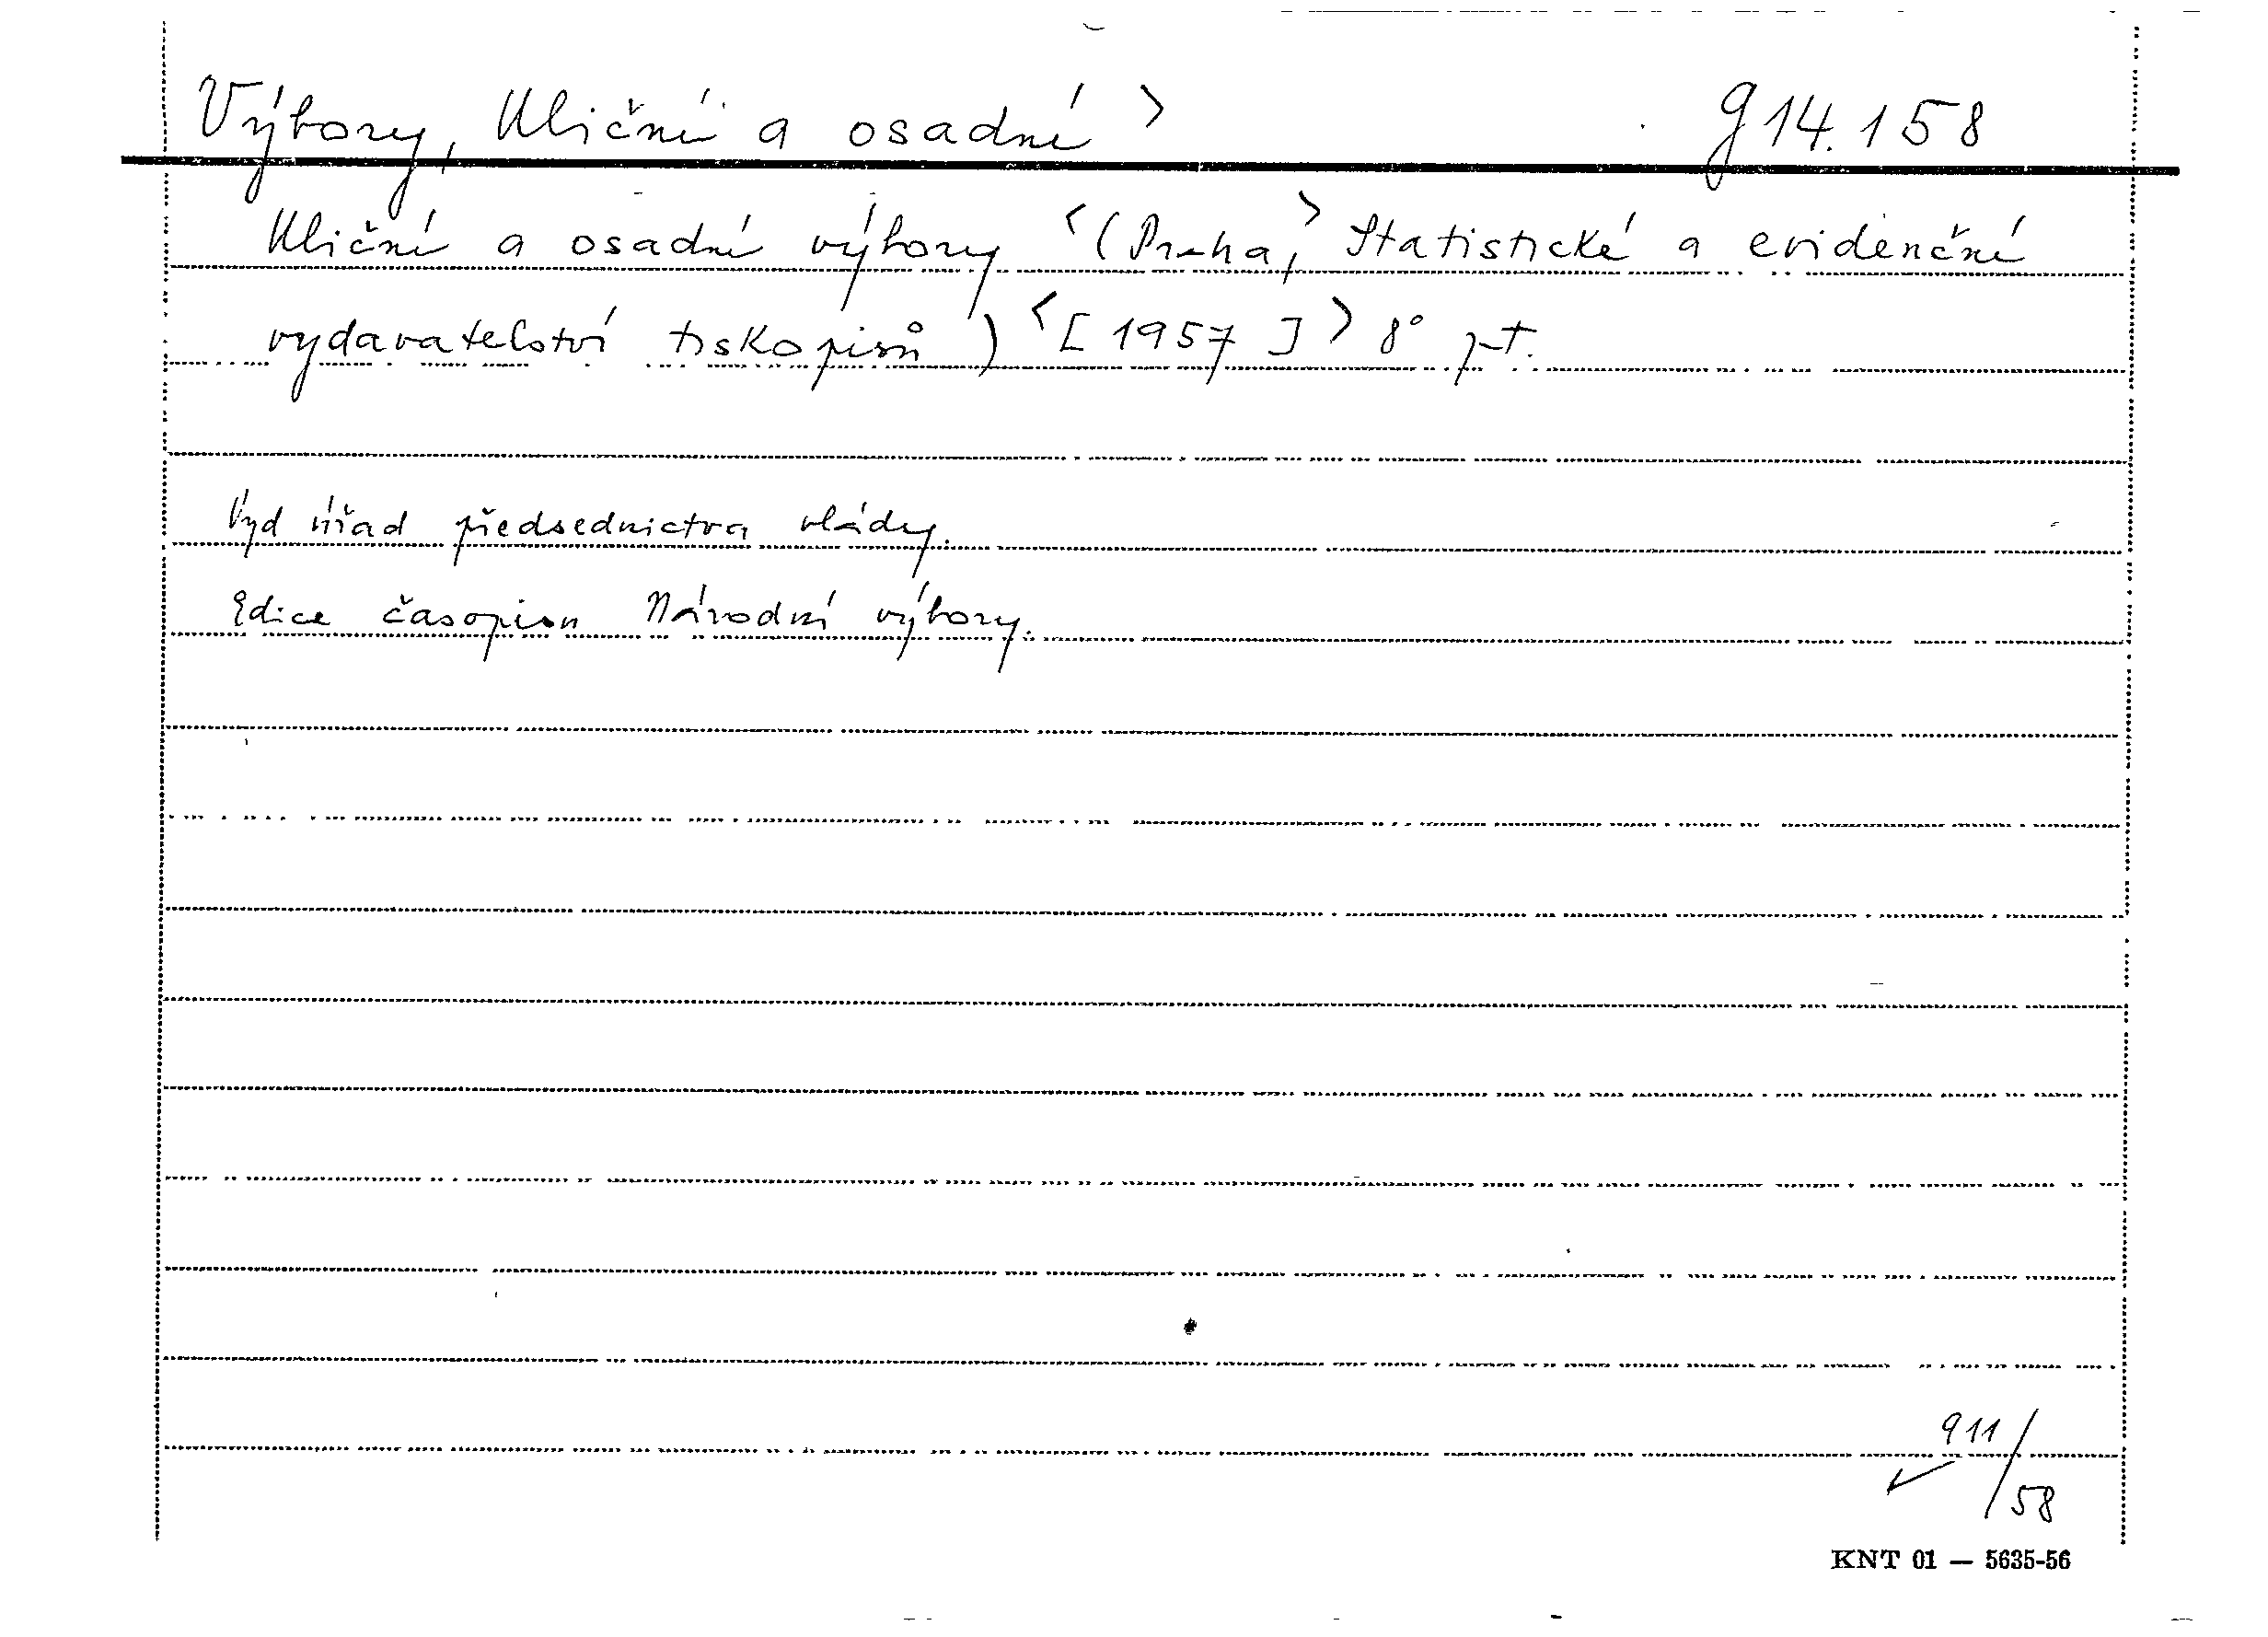 Výbory, Uliční a osadní > g 14.158
Uliční a osadní výbory <(Praha,> Statistické a evidenční
vydavatelství tiskopisů) <[1957]> 8°
Vyd úřad předsednictva vlády.
Edice časopisu Národní výbory.
911/58
KNT 01 — 5635-56